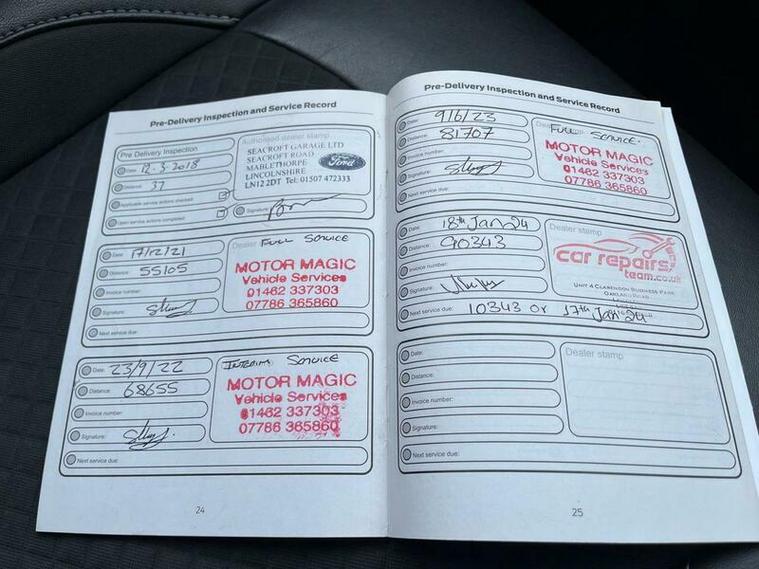 Pre-Delivery Inspection and Service Record
Pre Delivery Inspection
Date: 12.3.2018
Distance: 37
Applicable service actions checked:
Open service actions completed:
Authorised dealer stamp
SEACROFT GARAGE LTD
SEACROFT ROAD
MABLETHORPE
LINCOLNSHIRE
LN12 2DT Tel: 01507 472333
Ford
Signature:
Date: 17/12/21
Distance: 55105
Invoice number:
Signature:
Next service due:
Dealer Full Service
MOTOR MAGIC
Vehicle Services
01462 337303
07786 365860
Date: 23/9/22
Distance: 68655
Invoice number:
Signature:
Next service due:
Interim Service
MOTOR MAGIC
Vehicle Services
01462 337303
07786 365860
24
Pre-Delivery Inspection and Service Record
Date: 9/6/23
Distance: 81707
Invoice number:
Signature:
Next service due:
Full Service.
MOTOR MAGIC
Vehicle Services
01462 337303
07786 365860
Date: 18th Jan 24
Distance: 90343
Invoice number:
Signature:
Next service due: 10343 or 17th Jan 24
Dealer stamp
car repairs
team.co.uk
UNIT 4 CLARENDON BUSINESS PARK
OAKLAND ROAD
Date:
Distance:
Invoice number:
Signature:
Next service due:
Dealer stamp
25